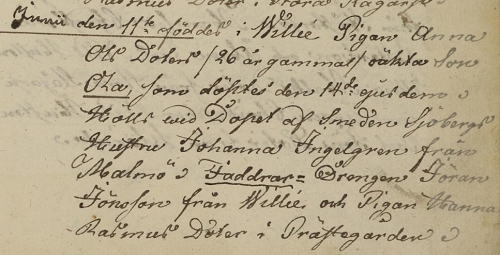 Rasmus Doter i Stora
Junii den 11te föddes i Willie Pigan Anna
Ols Doters /26 år gammal/ oäkta Son
Ola, som döptes den 14de ejusdem
Hölls wid Dopet af Smeden Sjöbergs
Hustru Johanna Ingelgren från
Malmö Faddrar = Drengen Jöran
Jönsson från Willie, och Pigan Hanna
Rasmus Doter i Prästegården